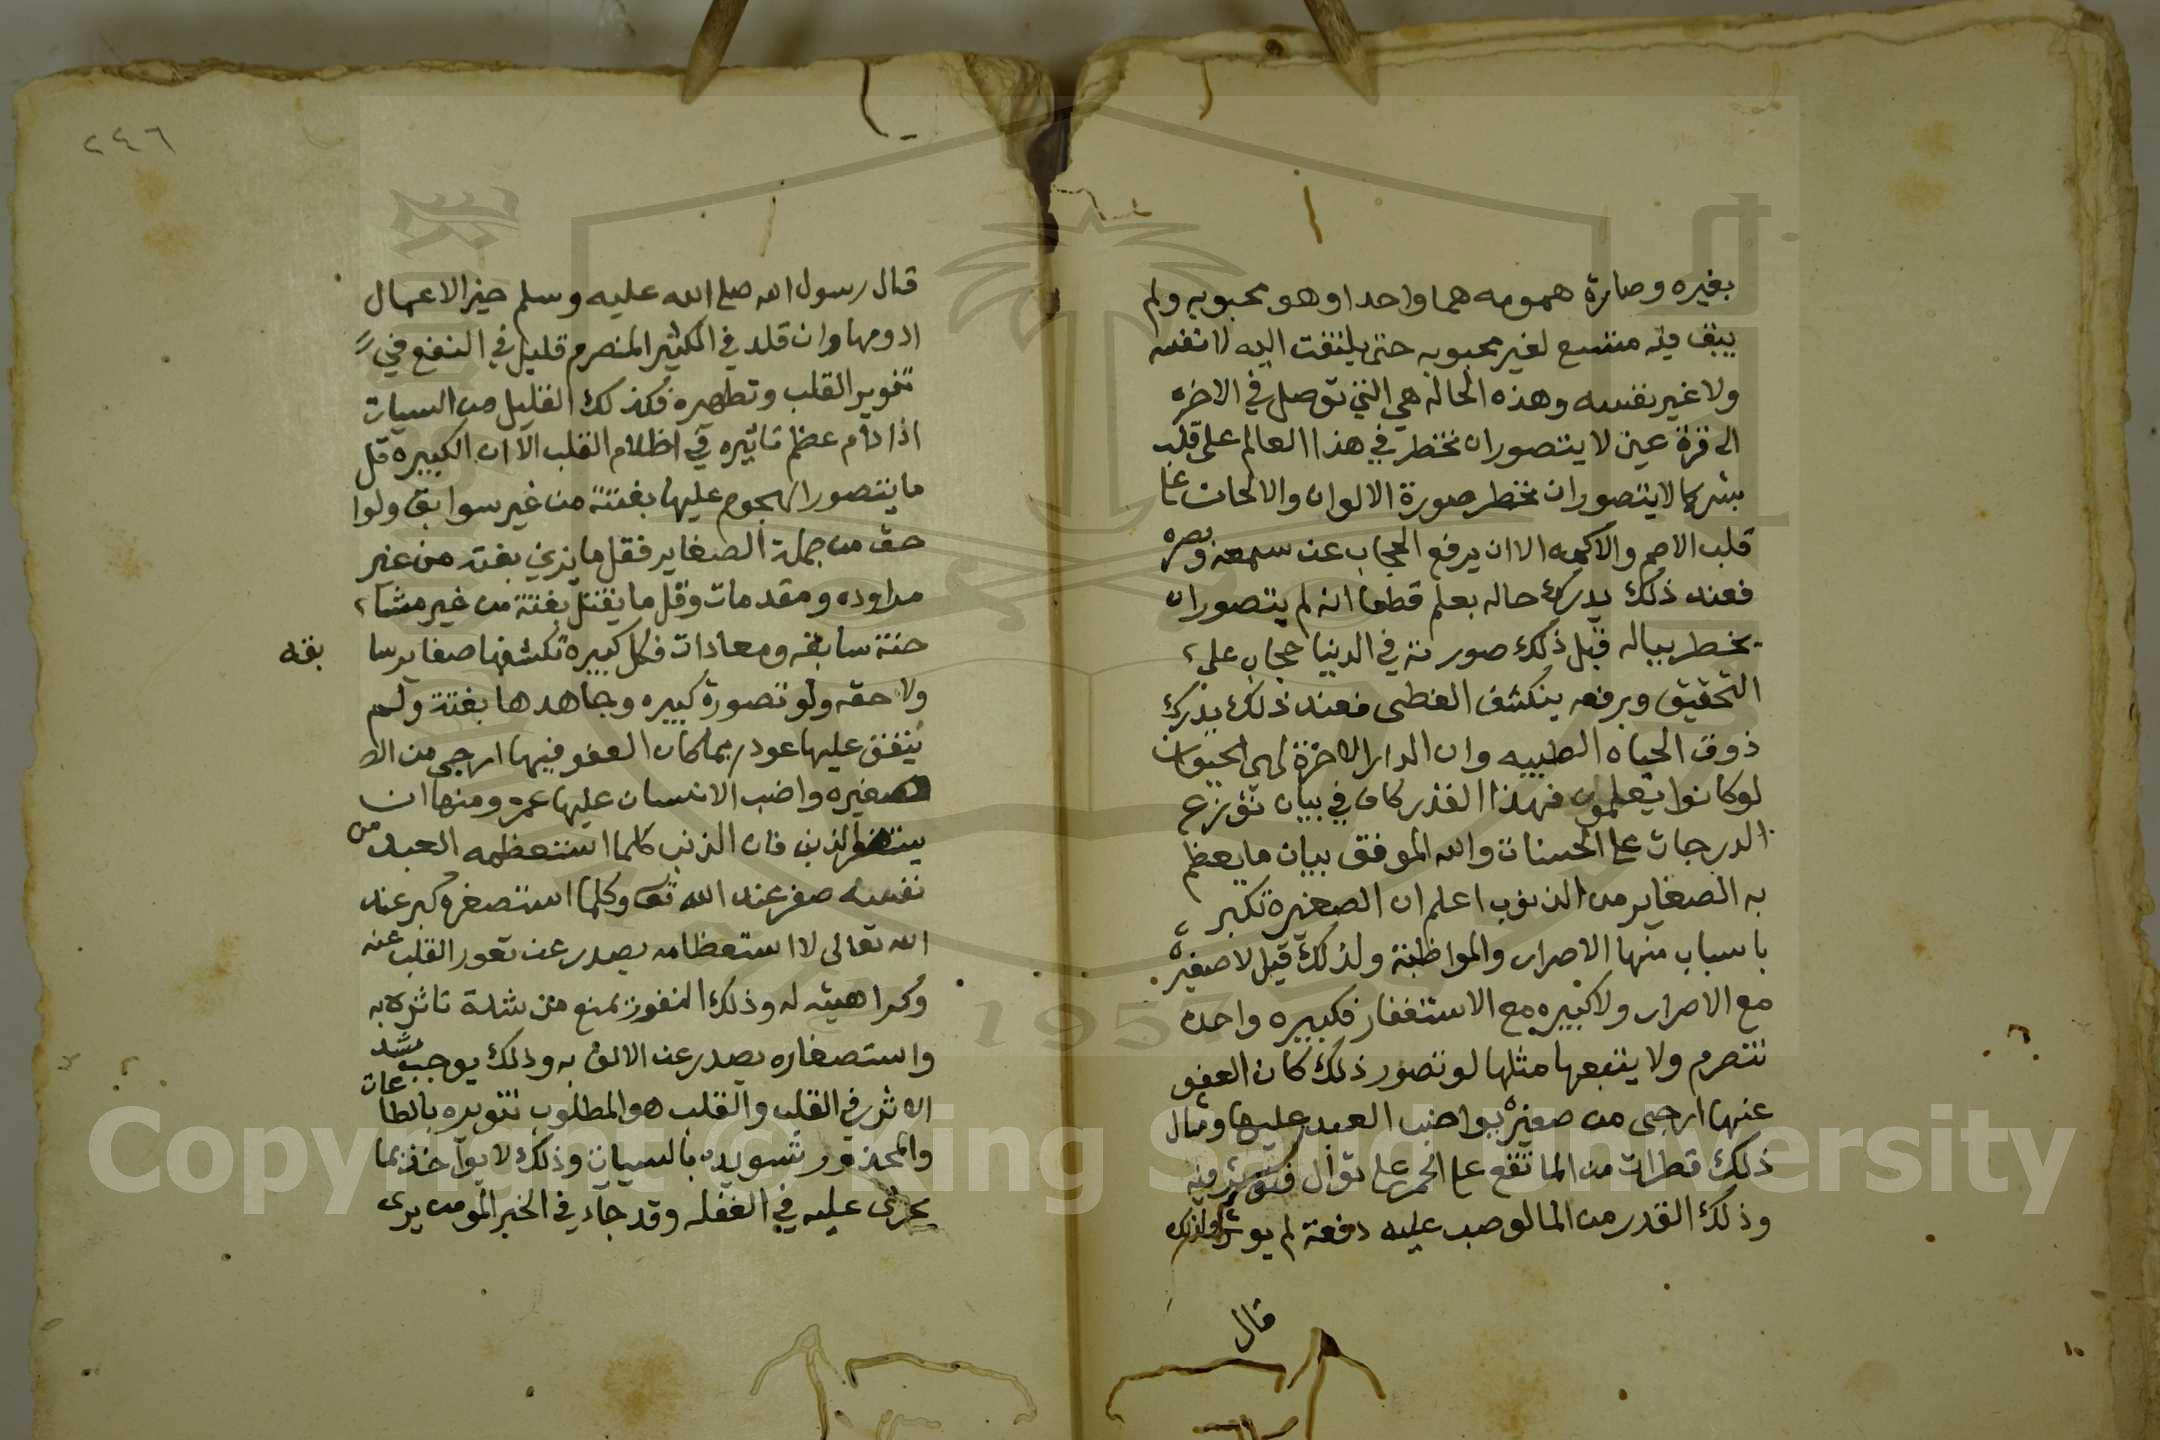 بغيره وصارة همومه هما واحدا وهو محبوبه ولم
يبق فيه متسع لغير محبوبه حتى يلتفت اليه لا نفسه
ولا غير نفسه وهذه الحالة هي التي توصل في الاخره
الى قرة عين لا يتصور ان تخطر في هذا العالم على قلب
بشر كما لا يتصور ان تخطر صورة الالوان والالحان على
قلب الاصم والاكمه الا ان يرفع الحجاب عن سمعه وبصره
فعند ذلك يدرك حاله بعلم قطعا انه لم يتصور ان
يخطر بباله قبل ذلك صورته في الدنيا حجاب على
التحقيق وبرفعه ينكشف الغطى فعند ذلك يدرك
ذوق الحياه الطيبه وان الدار الاخرة لهى الحيوان
لو كانوا يعلمون فهذا القدر كاف في بيان توزع
الدرجات على الحسنات والله الموفق بيان ما يعظم
به الصغاير من الذنوب اعلم ان الصغيرة تكبر
باسباب منها الاصرار والمواظبة ولذلك قيل لا صغيرة
مع الاصرار ولا كبيره مع الاستغفار فكبيره واحده
تتصرم ولا يتبعها مثلها لو تصور ذلك كان العفو
عنها ارجى من صغيرة يواضب العبد عليها ومثال
ذلك قطرات من الما تقع على الحجر على توال فتوثر فيه
وذلك القدر من الما لو صب عليه دفعة لم يوثر ولذلك
قال
٢٤٦
قال رسول الله صلى الله عليه وسلم خير الاعمال
ادومها وان قلت في الكثير المنصرم قليل في النفع في
تنوير القلب وتطهيره فكذلك القليل من السيات
اذا دام عظم تاثيره في اظلام القلب الا ان الكبيره قل
ما يتصور الهجوم عليها بغتة من غير سوابق ولوا
حق من جملة الصغاير فقل ما يزني بغته من غير
مراوده ومقدمات وقل ما يقتل بغتة من غير مشا
حنة سابقه ومعادات فكل كبيره تكتنفها صغاير سا
بقه
ولاحقه ولو تصورة كبيره وجاهدها بغتة ولم
يتفق عليها عود ربما كان العفو فيها ارجى من الص
صغيره واضب الانسان عليها عمره ومنها ان
يستصغر الذنب فان الذنب كلما استعظمه العبد من
نفسه صغر عند الله تعا وكلما استصغره كبر عند
الله تعالى لا استعظامه يصدر عن نعور القلب عنه
وكراهيته له وذلك النفور يمنع من شدة تاثره به
واستصغاره يصدر عن الالف به وذلك يوجب شد
الاثر في القلب والقلب هو المطلوب تنويره بالطاعات
والمحذور تسويده بالسيات وذلك لا يواخذ بما
يجرى عليه في الغفله وقد جاء في الخبر المومن يرى
Copyright © King Saud University
1957